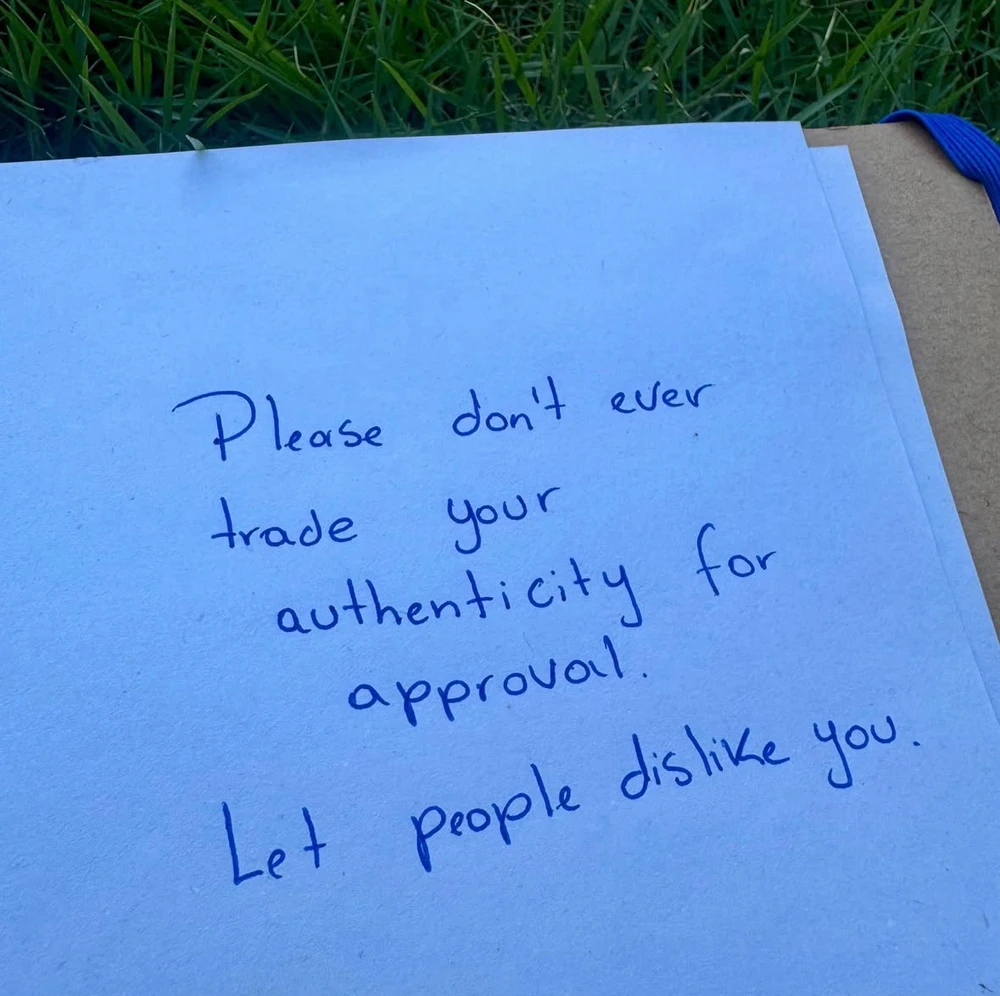 Please don't ever
trade your
authenticity for
approval.
Let people dislike you.